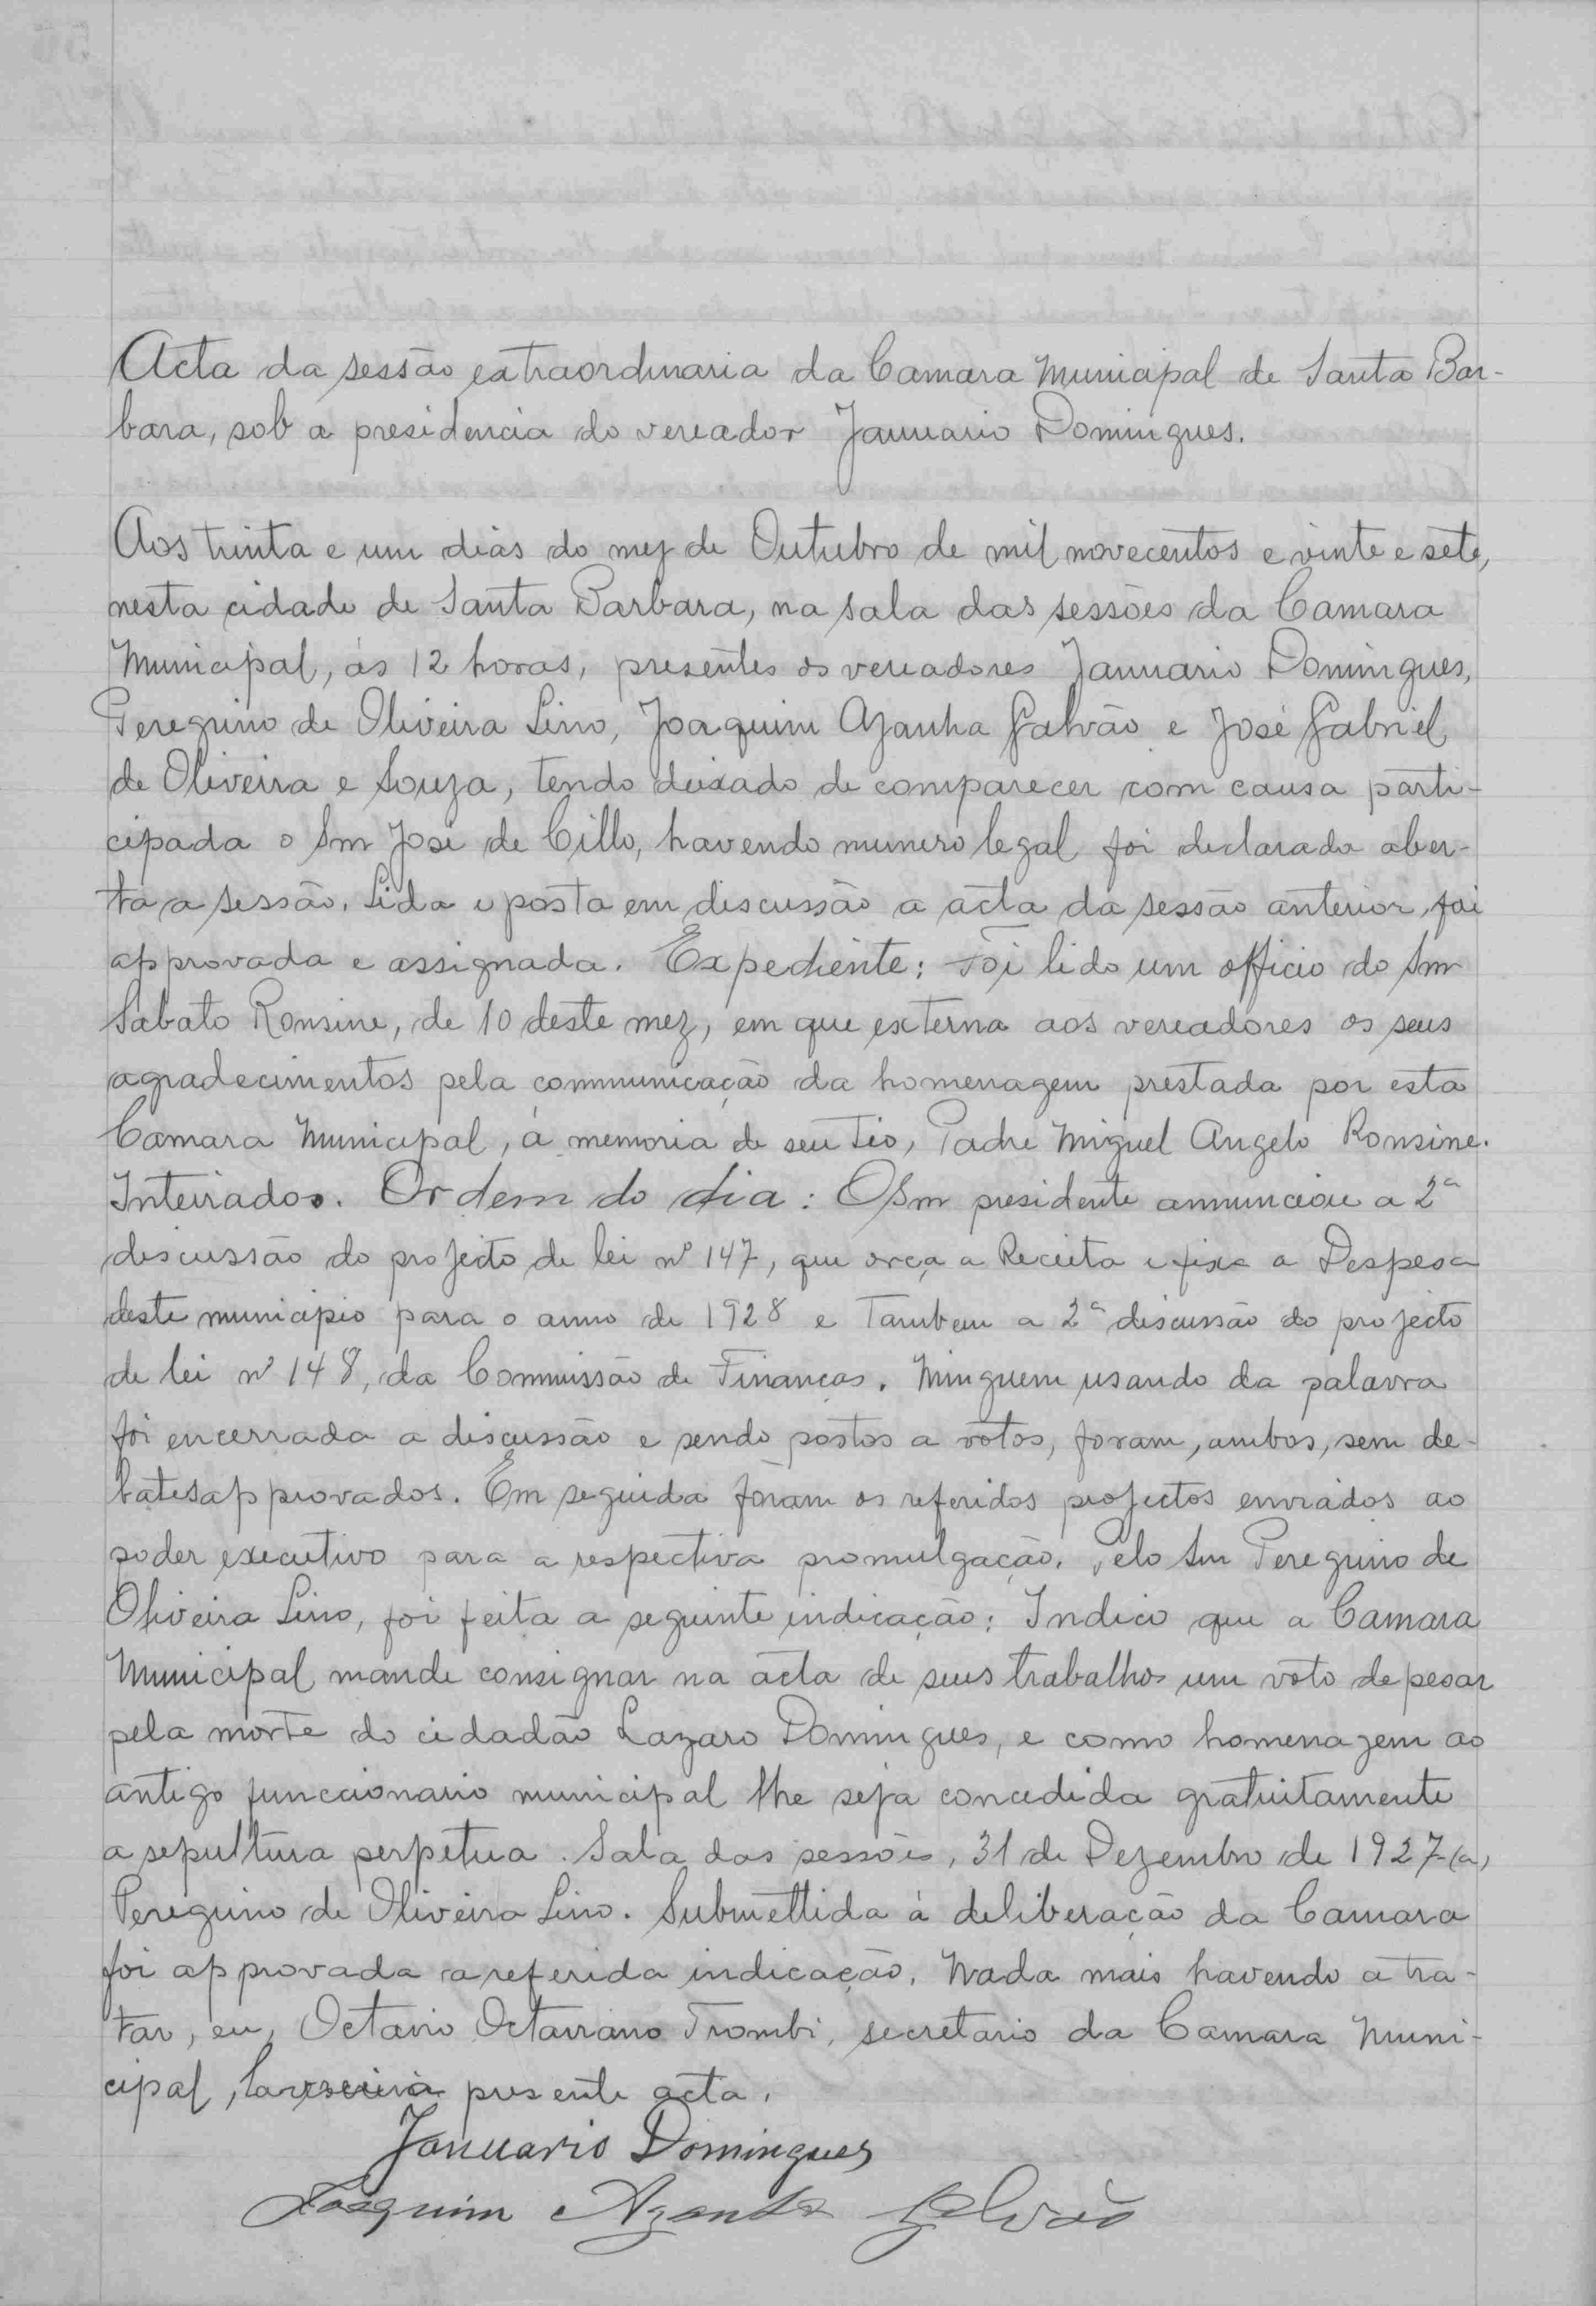 Acta da sessão extraordinaria da Camara Municipal de Santa Bar-
bara, sob a presidencia do vereador Januario Domingues.
Aos trinta e um dias do mez de Outubro de mil novecentos e vinte e sete,
nesta cidade de Santa Barbara, na sala das sessões da Camara
Municipal, ás 12 horas, presentes os vereadores Januario Domingues,
Peregrino de Oliveira Lino, Joaquim Azanha Galvão e José Gabriel
de Oliveira e Souza, tendo deixado de comparecer com causa parti-
cipada o Snr José de Cillo, havendo numero legal foi declarada aber-
ta a sessão. Lida e posta em discussão a acta da sessão anterior, foi
approvada e assignada. Expediente: Foi lido um officio do Snr
Sabato Ronsine, de 10 deste mez, em que externa aos vereadores os seus
agradecimentos pela communicação da homenagem prestada por esta
Camara Municipal, á memoria de seu tio, Padre Miguel Angelo Ronsine.
Inteirados. Ordem do dia: O Snr presidente annunciou a 2ª
discussão do projecto de lei nº 147, que orça a Receita e fixa a Despesa
deste municipio para o anno de 1928 e tambem a 2ª discussão do projecto
de lei nº 148, da Commissão de Finanças. Ninguem usando da palavra
foi encerrada a discussão e sendo postos a votos, foram, ambos, sem de-
bates approvados. Em seguida foram os referidos projectos enviados ao
poder executivo para a respectiva promulgação. Pelo Snr Peregrino de
Oliveira Lino, foi feita a seguinte indicação: Indico que a Camara
Municipal mande consignar na acta de seus trabalhos um voto de pesar
pela morte do cidadão Lazaro Domingues, e como homenagem ao
antigo funccionario municipal lhe seja concedida gratuitamente
a sepultura perpetua. Sala das sessões, 31 de Dezembro de 1927-(a)
Peregrino de Oliveira Lino. Submettida á deliberação da Camara
foi approvada a referida indicação. Nada mais havendo a tra-
tar, eu, Octavio Octaviano Trombi, secretario da Camara Muni-
cipal, lavrei a presente acta.
Januario Domingues
Joaquim Azanha Galvão